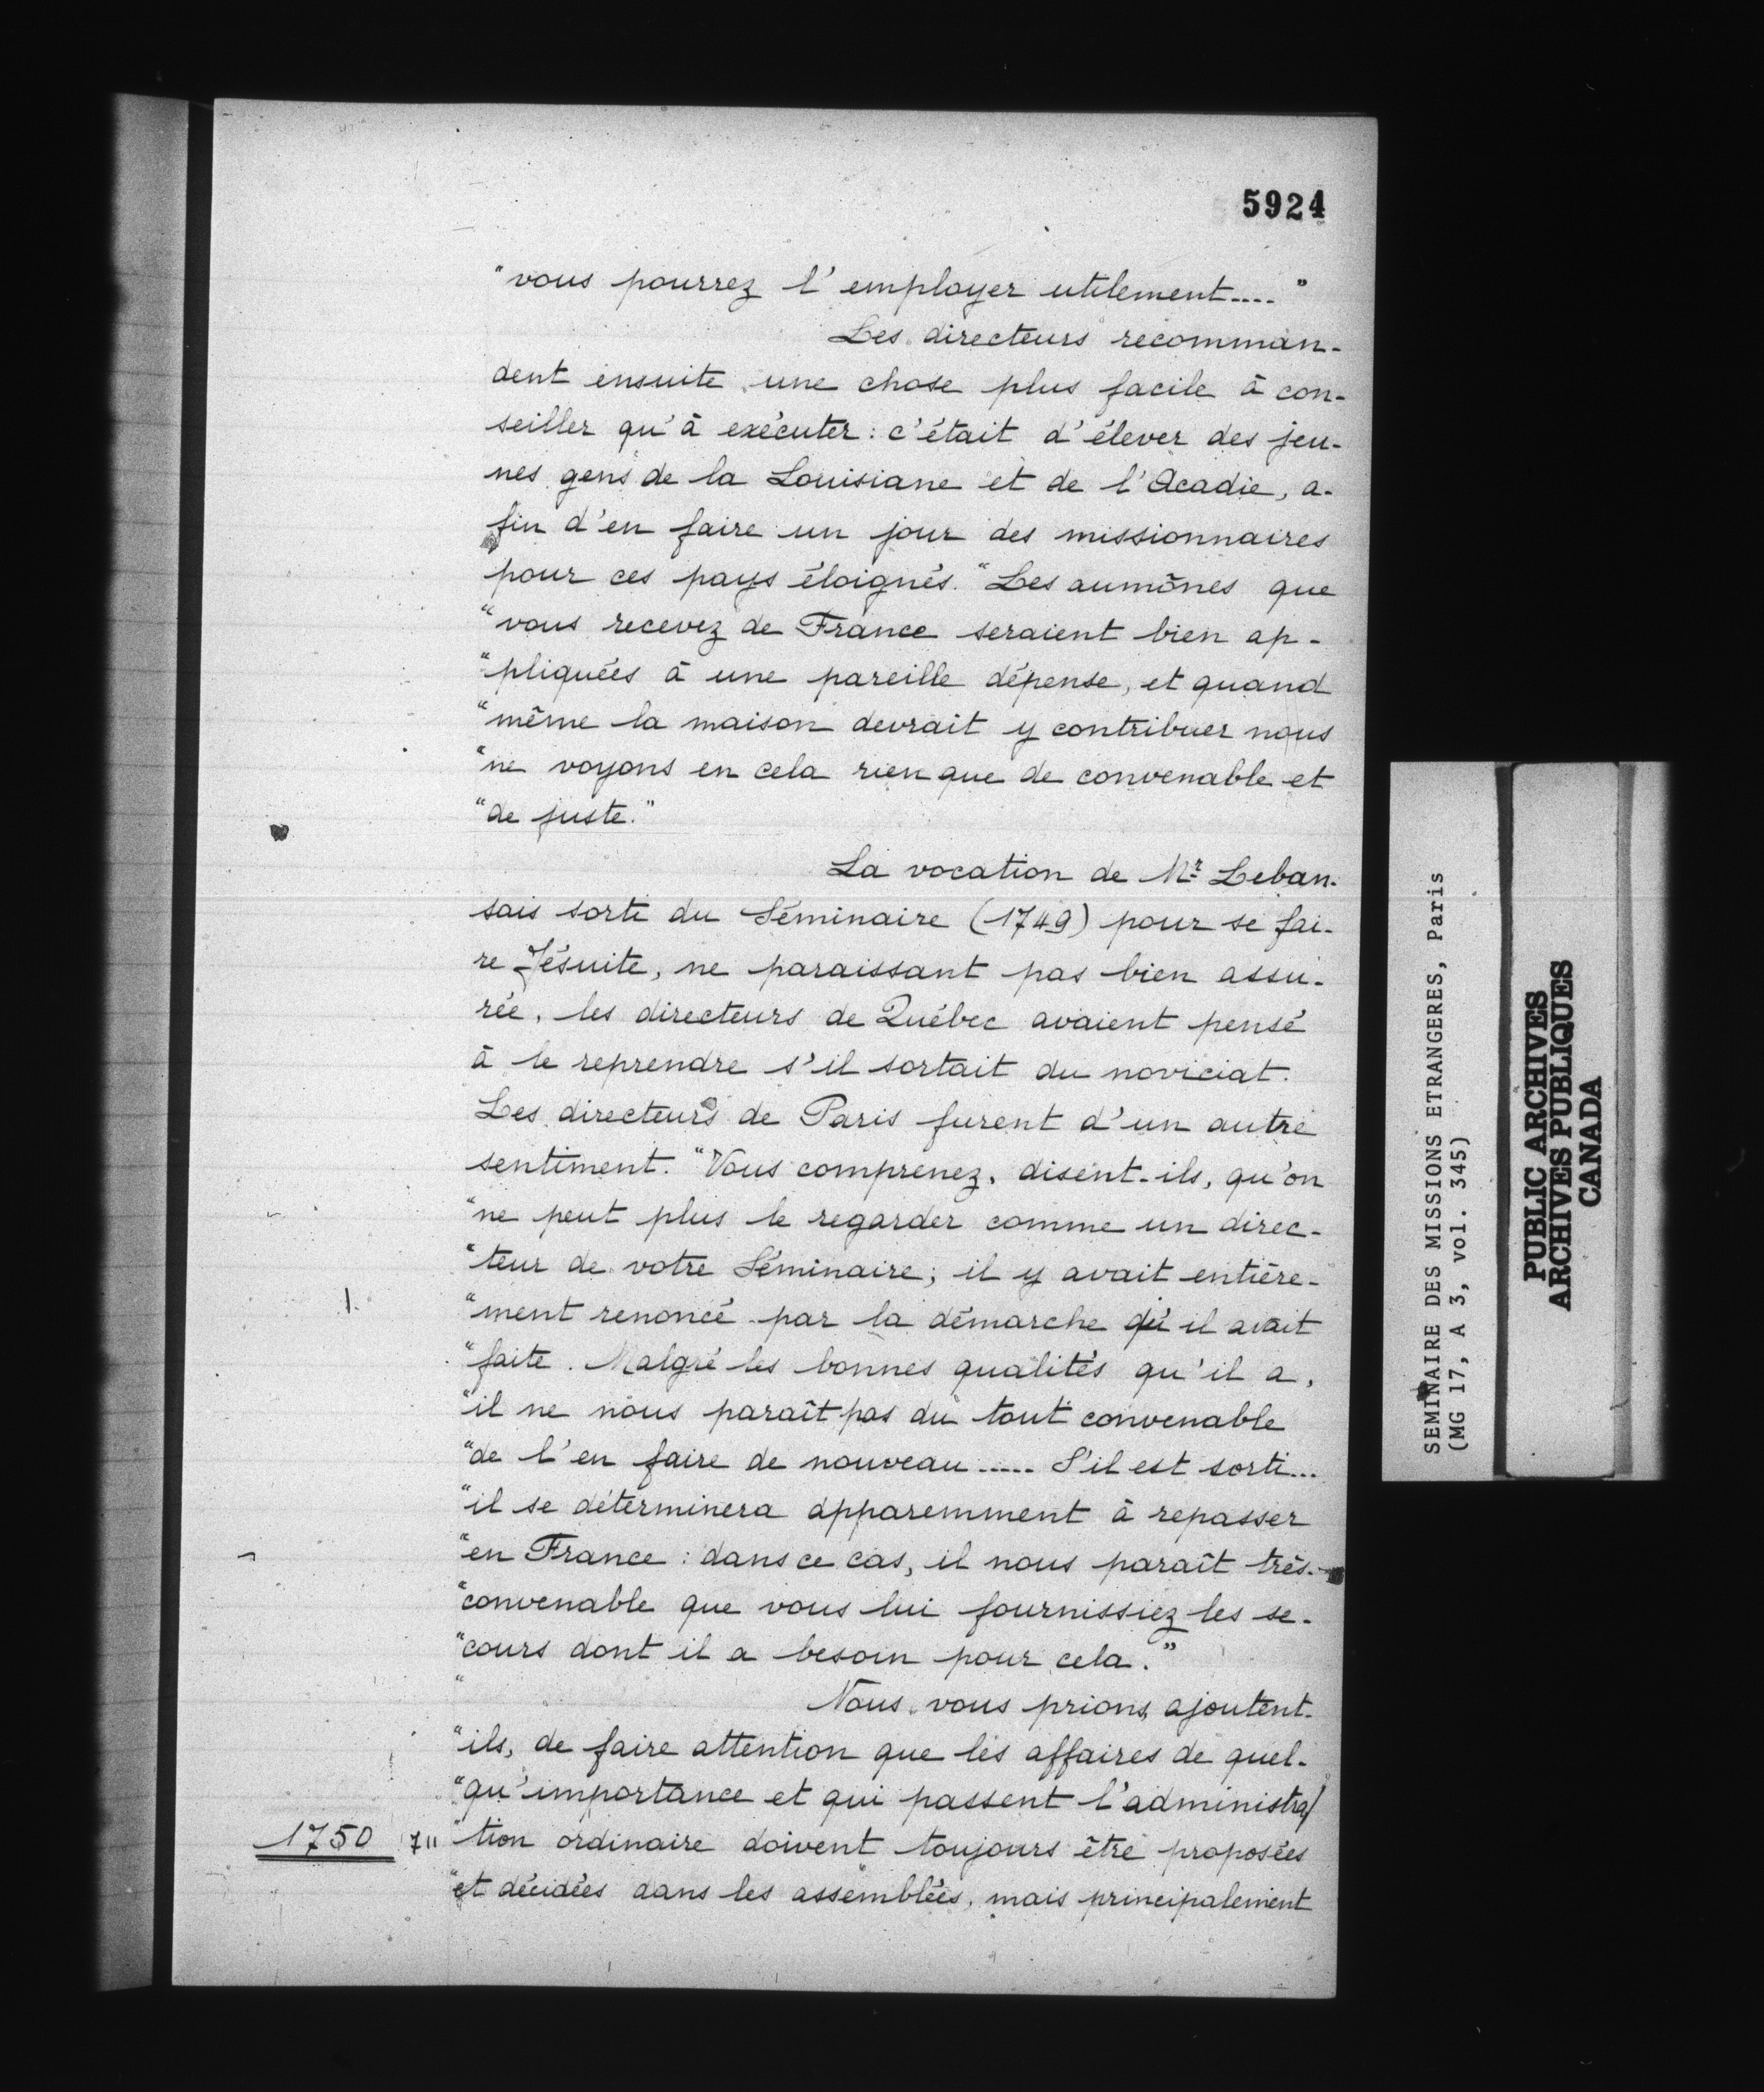 5924
"vous pourrez l'employer utilement...."
Les directeurs recomman-
dent ensuite une chose plus facile à con-
seiller qu'à exécuter : c'était d'élever des jeu-
nes gens de la Louisiane et de l'Acadie, a-
fin d'en faire un jour des missionnaires
pour ces pays éloignés. "Les aumônes que
"vous recevez de France seraient bien ap-
"pliquées à une pareille dépense, et quand
"même la maison devrait y contribuer nous
"ne voyons en cela rien que de convenable et
"de juste."
La vocation de Mr Leban-
sais sorti du Séminaire (1749) pour se fai-
re Jésuite, ne paraissant pas bien assu-
rée, les directeurs de Québec avaient pensé
à le reprendre s'il sortait du noviciat.
Les directeurs de Paris furent d'un autre
sentiment. "Vous comprenez, disent-ils, qu'on
"ne peut plus le regarder comme un direc-
"teur de votre Séminaire; il y avait entière-
"ment renoncé par la démarche qu'il avait
"faite. Malgré les bonnes qualités qu'il a,
"il ne nous paraît pas du tout convenable
"de l'en faire de nouveau..... S'il est sorti...
"il se déterminera apparemment à repasser
"en France : dans ce cas, il nous paraît très-
"convenable que vous lui fournissiez les se-
"cours dont il a besoin pour cela."
"Nous vous prions, ajoutent-
"ils, de faire attention que les affaires de quel-
"qu'importance et qui passent l'administra
1750 "tion ordinaire doivent toujours être proposées
"et décidées dans les assemblées, mais principalement
SEMINAIRE DES MISSIONS ETRANGERES, Paris
(MG 17, A 3, vol. 345)
PUBLIC ARCHIVES
ARCHIVES PUBLIQUES
CANADA